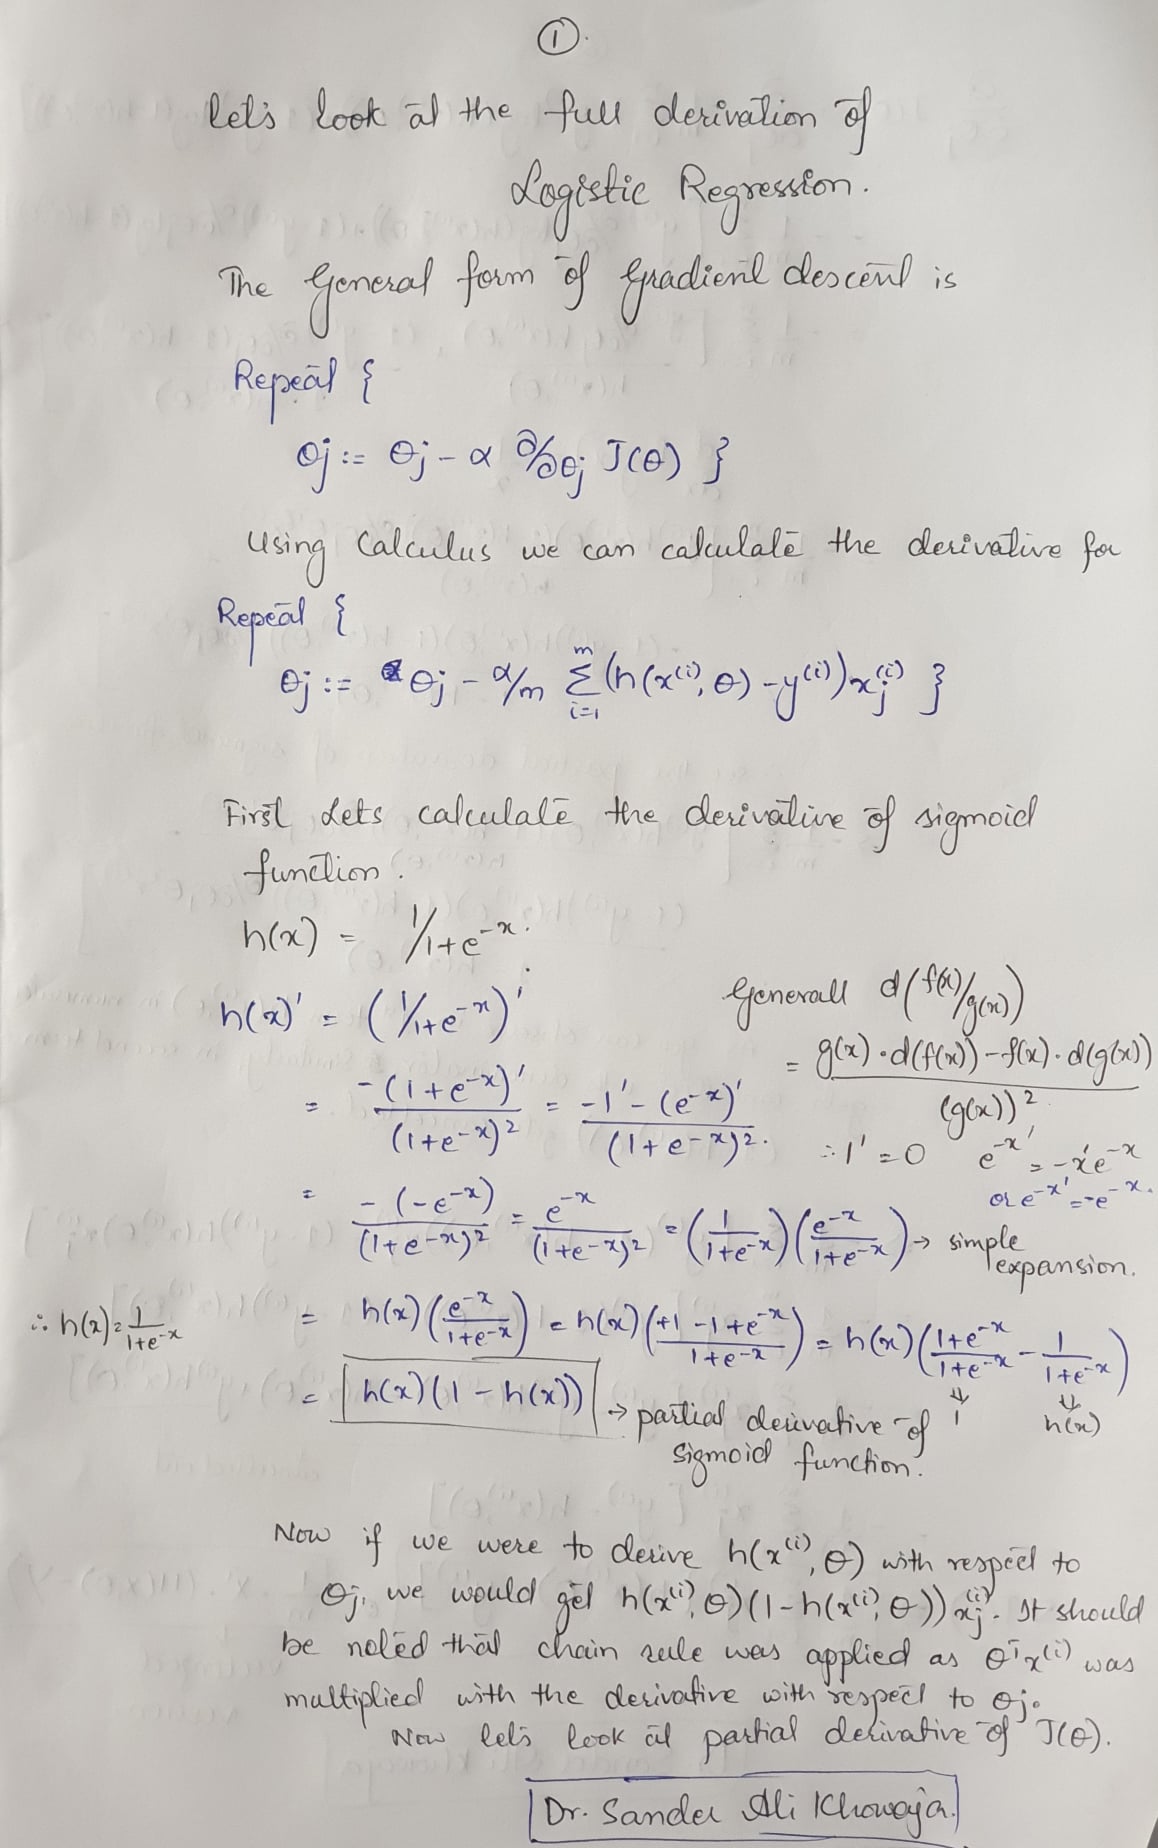 ①.
let's look at the full derivation of
Logistic Regression.
The General form of Gradient descent is
Repeat {
θj := θj - α ∂/∂θj J(θ) }
Using Calculus we can calculate the derivative for
Repeat {
θj := θj - α/m Σ_{i=1}^{m} (h(x^(i), θ) - y^(i)) xj^(i) }
First Lets calculate the derivative of sigmoid
function.
h(x) = 1/1+e^-x.
h(x)' = (1/1+e^-x)'
= -(1+e^-x)' / (1+e^-x)^2 = -1' - (e^-x)' / (1+e^-x)^2.
Generall d(f(x)/g(x))
= g(x)·d(f(x)) - f(x)·d(g(x)) / (g(x))^2
∴ 1' = 0 e^-x' = -x'e^-x
or e^-x' = -e^-x.
= -(-e^-x) / (1+e^-x)^2 = e^-x / (1+e^-x)^2 = (1 / 1+e^-x) (e^-x / 1+e^-x) → simple
expansion.
∴ h(x) = 1 / 1+e^-x
= h(x) (e^-x / 1+e^-x) = h(x) (+1 -1 +e^-x / 1+e^-x) = h(x) (1+e^-x / 1+e^-x - 1 / 1+e^-x)
⇓ 1 ⇓ h(x)
= h(x) (1 - h(x)) → partial derivative of
sigmoid function.
Now if we were to derive h(x^(i), θ) with respect to
θj, we would get h(x^(i), θ)(1 - h(x^(i), θ)) xj^(i). It should
be noted that chain rule was applied as θ^T x^(i) was
multiplied with the derivative with respect to θj.
Now let's look at partial derivative of J(θ).
Dr. Sander Ali Khowaja.